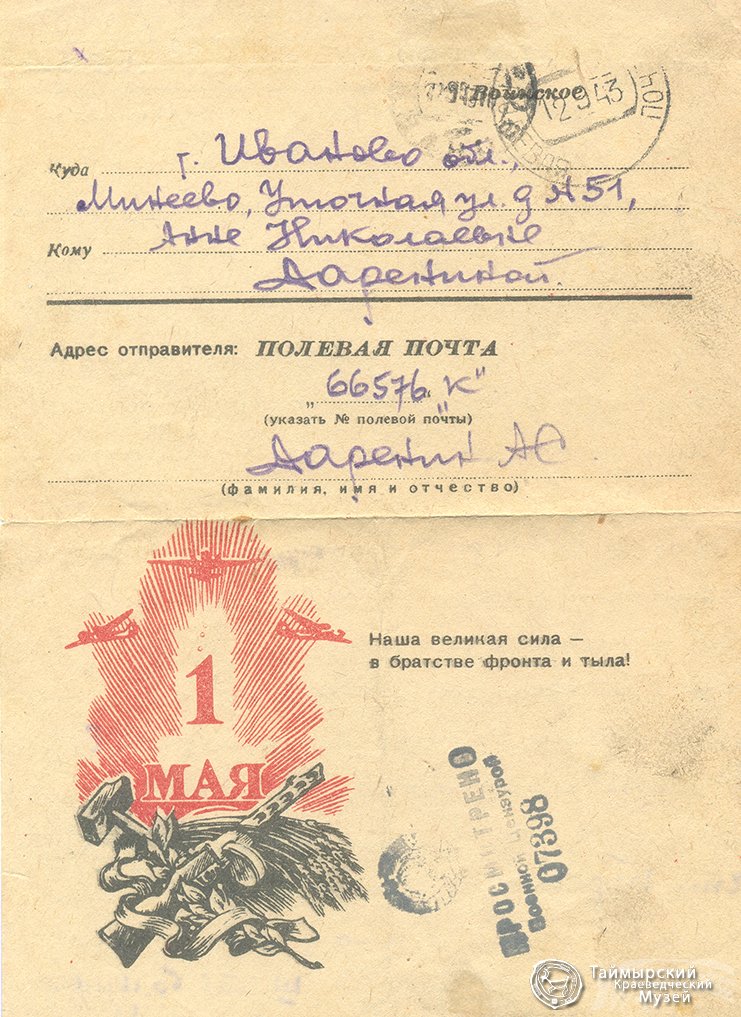 Воинское
12 9 43
Куда г. Иваново обл.,
Минеево, Уточная ул. д №51,
Кому Анне Николаевне
Дарениной.
Адрес отправителя: ПОЛЕВАЯ ПОЧТА
„66576 „К"
(указать № полевой почты)
Даренин АС
(фамилия, имя и отчество)
1
МАЯ
Наша великая сила —
в братстве фронта и тыла!
ПРОСМОТРЕНО
Военной Цензурой
07398
Таймырский
Краеведческий
Музей